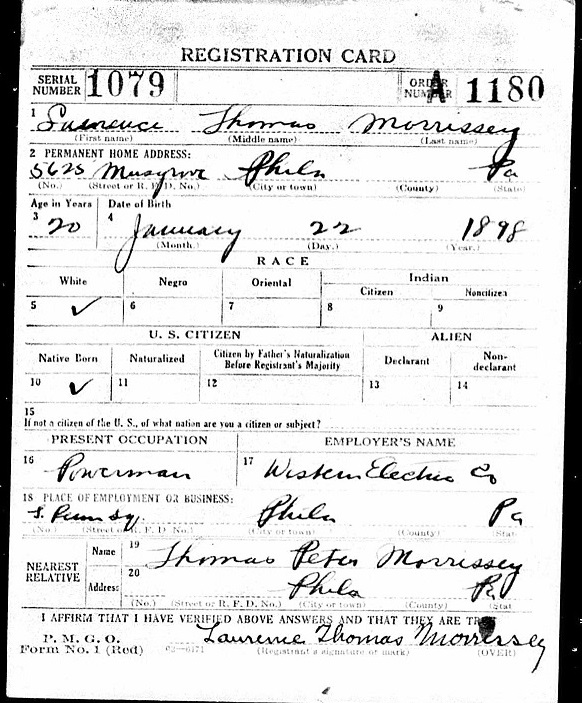 REGISTRATION CARD
SERIAL NUMBER 1079 ORDER NUMBER A 1180
1 Laurence Thomas Morrissey
(First name) (Middle name) (Last name)
2 PERMANENT HOME ADDRESS:
5625 Musgrove Phila Pa
(No.) (Street or R. F. D. No.) (City or town) (County) (State)
Age in Years Date of Birth
3 20 4 January 22 1898
(Month.) (Day.) (Year.)
RACE
White Negro Oriental Indian
Citizen Noncitizen
5 ✓ 6 7 8 9
U. S. CITIZEN ALIEN
Native Born Naturalized Citizen by Father's Naturalization Before Registrant's Majority Declarant Non-declarant
10 ✓ 11 12 13 14
15
If not a citizen of the U. S., of what nation are you a citizen or subject?
PRESENT OCCUPATION EMPLOYER'S NAME
16 Powerman 17 Western Electric Co
18 PLACE OF EMPLOYMENT OR BUSINESS:
Penn Sq. Phila Pa
(No.) (Street or R. F. D. No.) (City or town) (County) (State
NEAREST RELATIVE
Name 19 Thomas Peter Morrissey
Address 20 Phila Pa
(No.) (Street or R. F. D. No.) (City or town) (County) (State
I AFFIRM THAT I HAVE VERIFIED ABOVE ANSWERS AND THAT THEY ARE TRUE
P. M. G. O.
Form No. 1 (Red) Laurence Thomas Morrissey
(Registrant's signature or mark) (OVER)